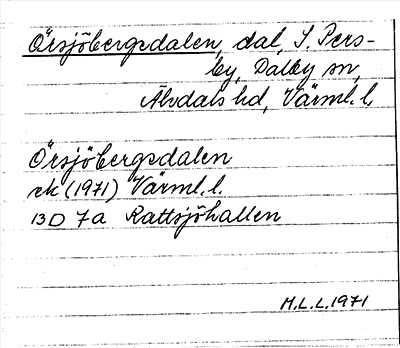 Örsjöbergsdalen, dal, S. Pers-
by, Dalby sn,
Älvdals hd, Värml. l.
Örsjöbergsdalen
ek (1971) Värml. l.
13D 7a Rattsjöhallen
M.L.L. 1971